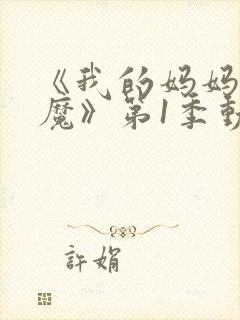 《我的妈妈
魔》第1季動
許娟